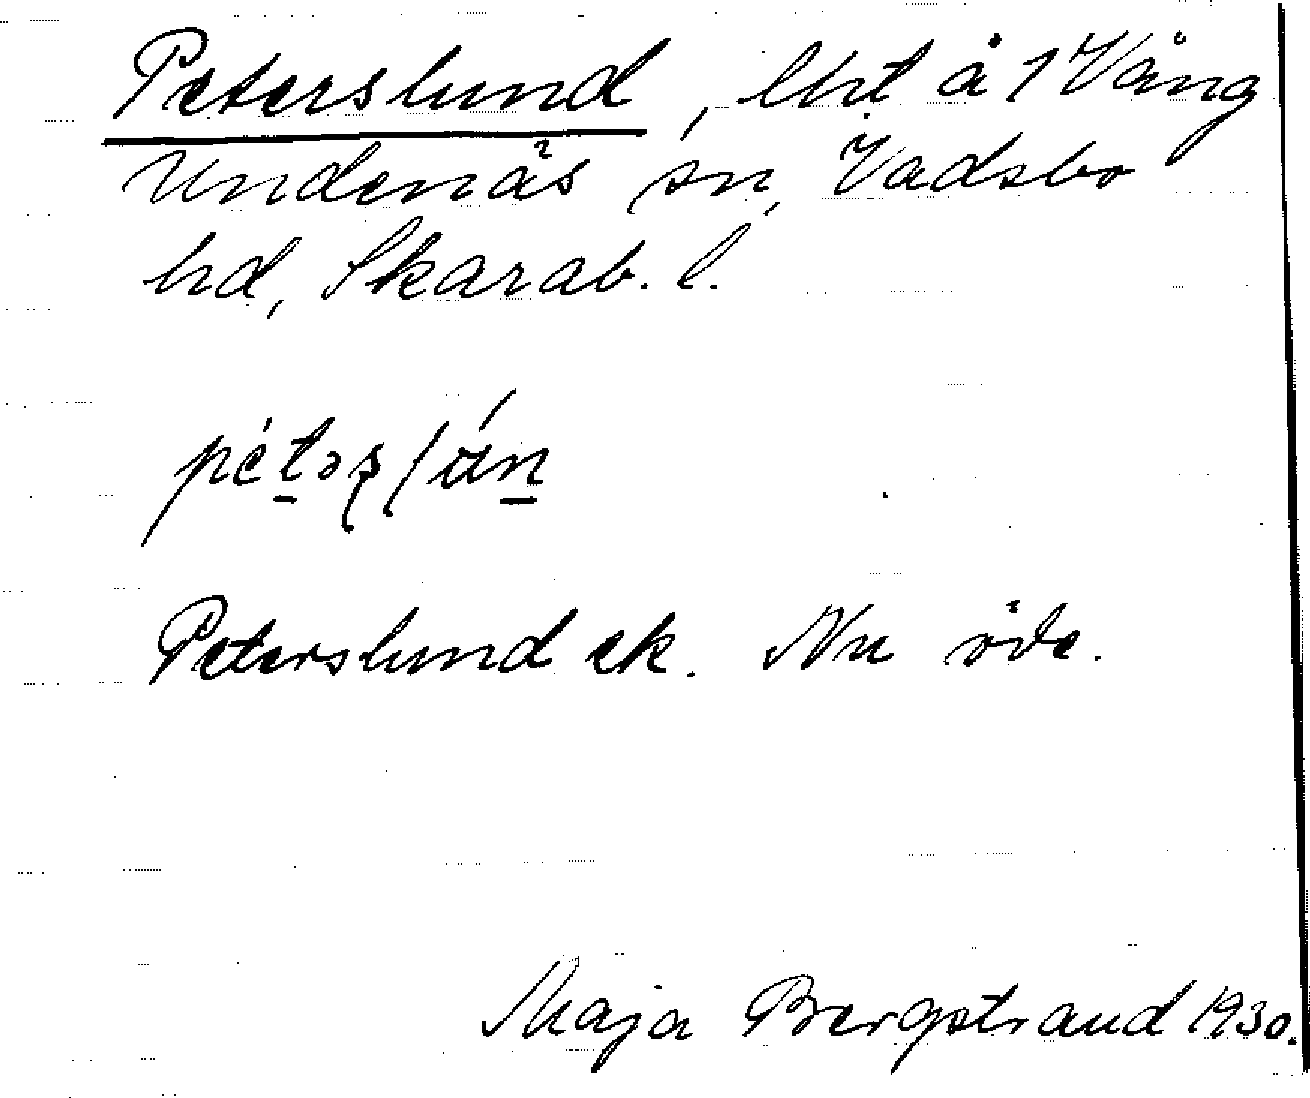 Peterslund, lht å 1 Vång
Undenäs sn, Vadsbo
hd, Skarab. l.
Peterslund ek. Nu öde.
Maja Bergstrand 1930.